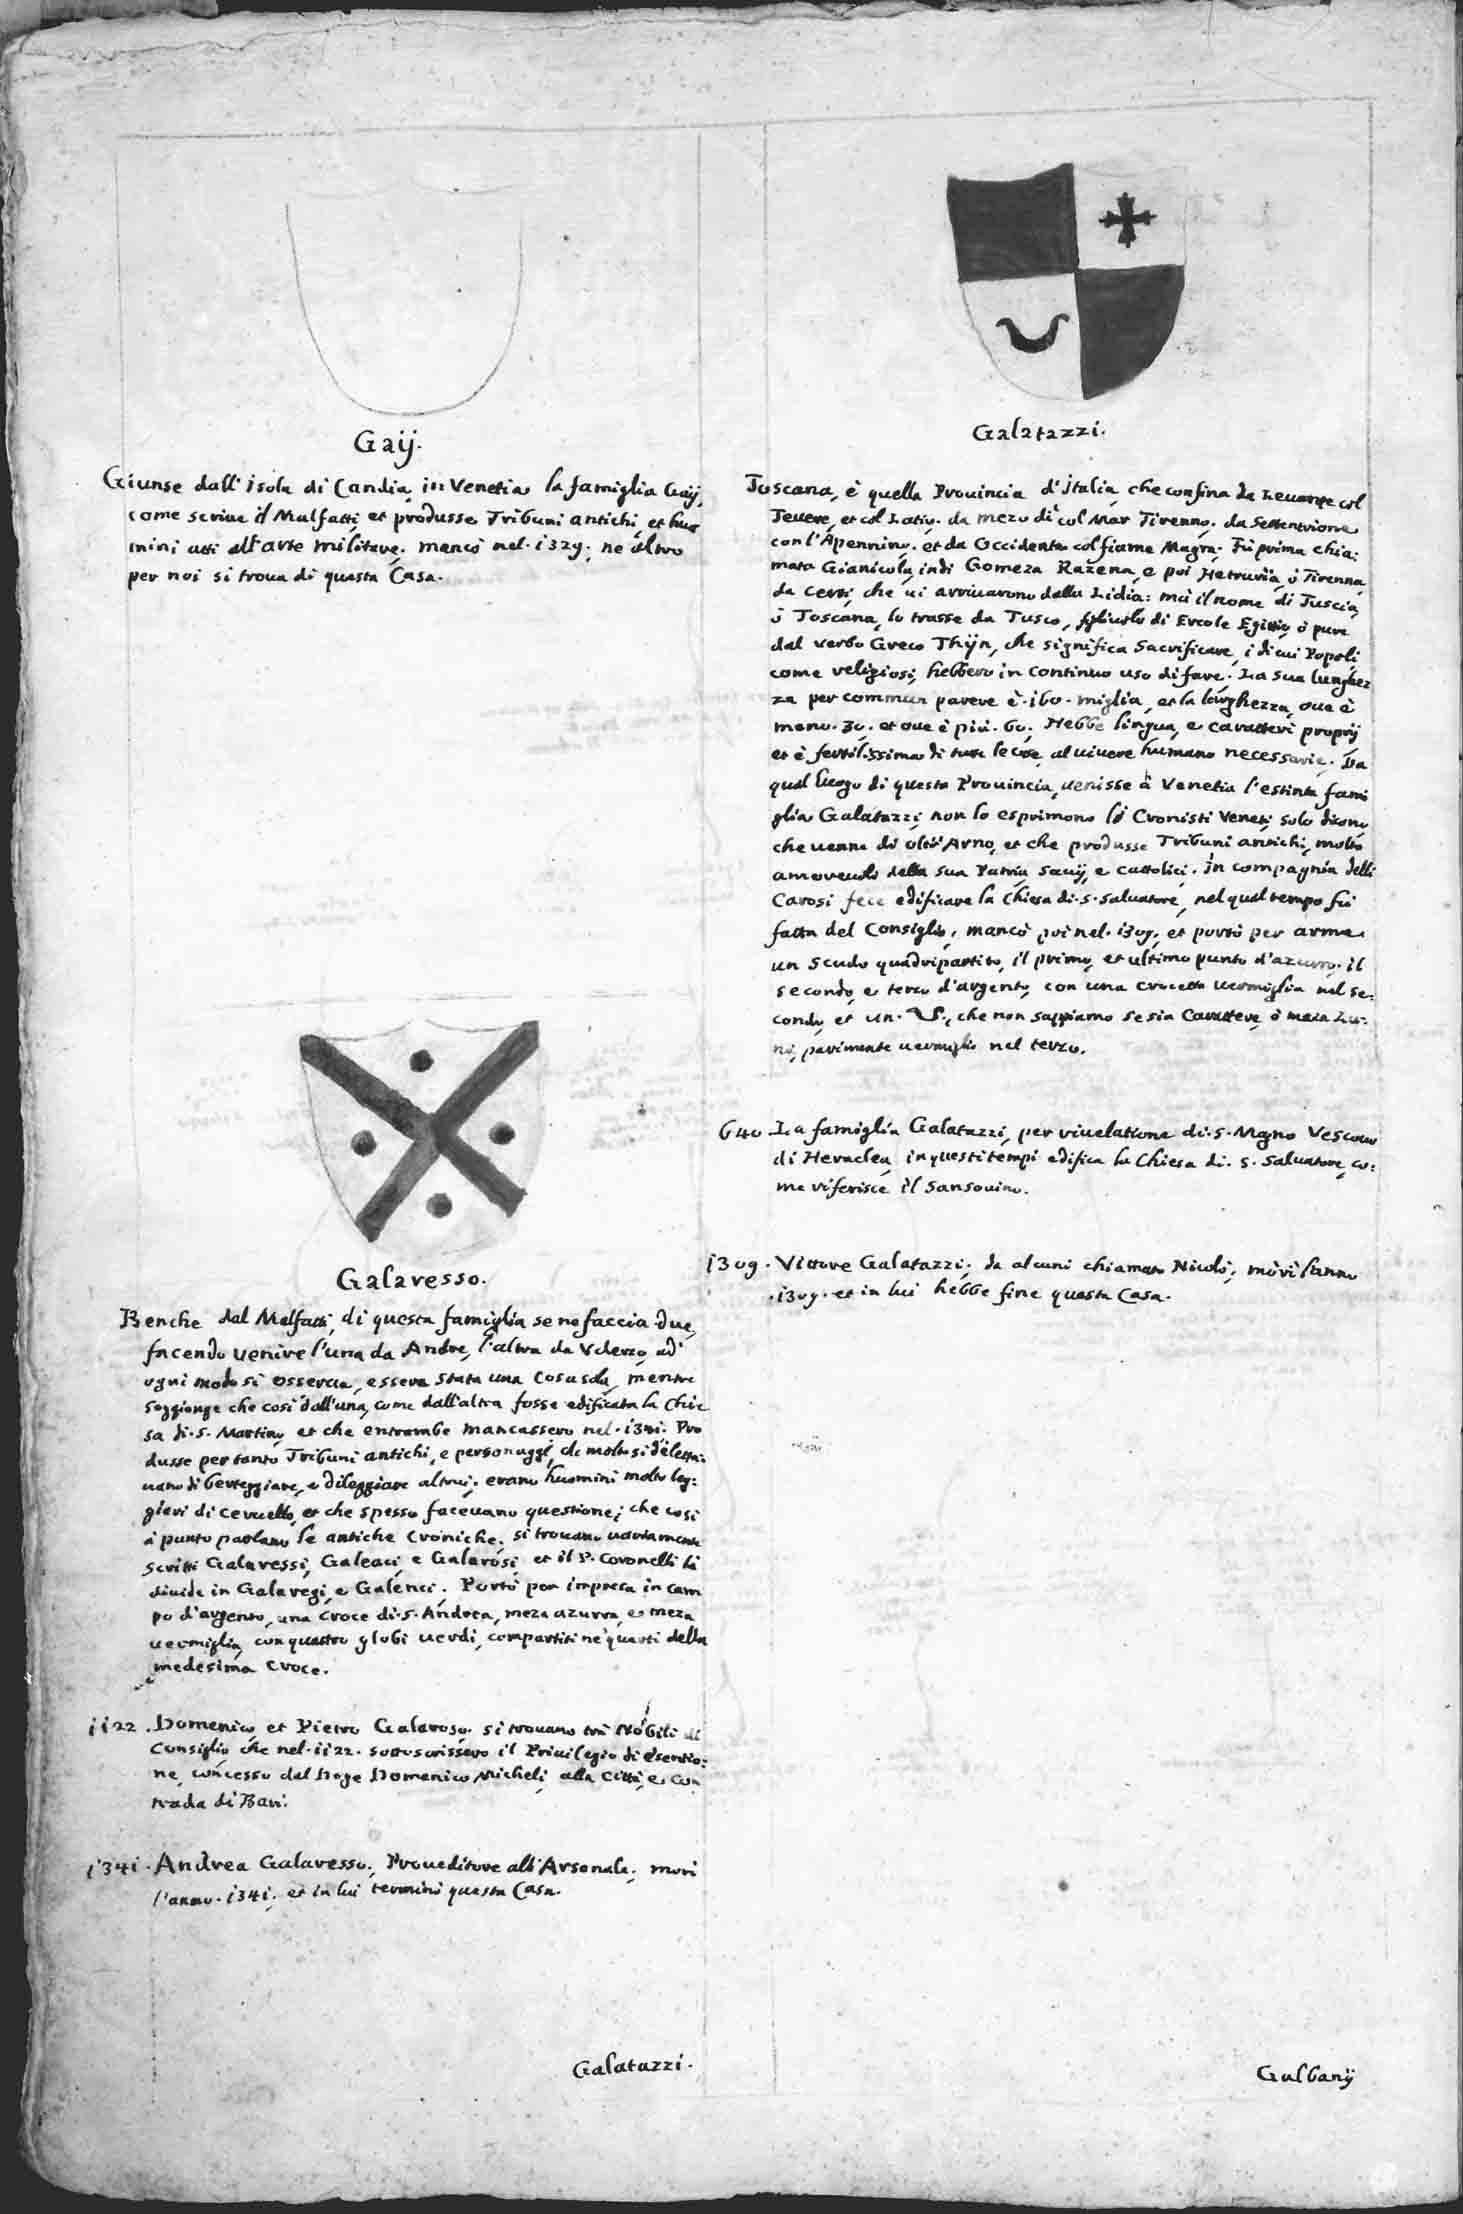 Gaij.
Giunse dall'isola di Candia, in Venetia la famiglia Gaij,
come scriue il Malfatti, et produsse Tribuni antichi, et huo
mini atti all'arte militare; mancò nel 1329; ne altro
per noi si troua di questa Casa.
Galaresso.
Benche dal Malfatti, di questa famiglia se ne faccia due,
facendo venire l'una da Andre, l'altra da Vderzo, ad
ogni modo si osserua, essere stata una Cosa sola, mentre
soggionge che così dall'una, come dall'altra fosse edificata la Chie
sa di S. Martino, et che entrambe mancassero nel 1341. Pro
dusse per tanto Tribuni antichi, e personaggi, che molto si diletta:
uano di berteggiare, e dileggiare altrui; erano huomini molto leg:
gieri di ceruello, et che spesso faceuano questione; che così
à punto parlano le antiche Croniche; si trouano uariamente
scritti Galaressi, Galeaci, e Galarosi, et il P. Coronelli li
diuide in Galaregi, e Galenci. Portò per impresa in cam
po d'argento, una Croce di S. Andrea, meza azurra, e meza
uermiglia, con quattro globi uerdi, compartiti ne' quarti della
medesima Croce.
1122. Domenico et Pietro Galaroso, si trouano trà Nobili di
Consiglio che nel 1122. sottoscrissero il Priuilegio di esentio:
ne, concesso dal Doge Domenico Micheli, alla Città, e Con
trada di Bari.
1341. Andrea Galaresso, Proueditore all'Arsenale, morì
l'anno 1341; et in lui terminò questa Casa.
Galatazzi.
Galatazzi.
Toscana, è quella Prouincia d'Italia, che confina da Leuante col
Teuere, et col Latio; da mezo dì col Mar Tirenno; da Settentrione
con l'Apennino; et da Occidente col fiume Magra; Fù prima chia:
mata Gianicola, indi Gomeza Razena, e poi Hetruria, ò Tirenna
da certi, che ui arriuarono dalla Lidia: mà il nome di Tuscia,
ò Toscana, lo trasse da Tusco, figliuolo di Ercole Egittio, ò pure
dal verbo Greco Thijn, che significa Sacrificare, i di cui Popoli,
come religiosi, hebbero in continuo uso di fare. La sua lunghez
za per commun parere è 160 miglia, et la larghezza, oue è
meno 30. et oue è più 60; Hebbe lingua, e caratteri proprij
et è fertilissima di tutte le cose, al uiuere humano necessarie. Da
qual luogo di questa Prouincia, uenisse à Venetia l'estinta fami
glia Galatazzi, non lo esprimono li Cronisti Veneti, solo dicono
che uenne di oltr'Arno, et che produsse Tribuni antichi, molto
amoreuoli della sua Patria, sauij, e cattolici. In compagnia delli
Carosi fece edificare la Chiesa di S. Saluatore, nel qual tempo fù
fatta del Consiglio, mancò poi nel 1309. et portò per arma
un scudo quadripartito, il primo, et ultimo punto d'azurro, il
secondo, e terzo d'argento, con una crocetta uermiglia nel se:
condo, et un , che non sappiamo se sia Carattere, ò meza Lu:
na, parimente uermiglio nel terzo.
640 La famiglia Galatazzi, per riuelatione di S. Magno Vescouo
di Heraclea, in questi tempi edifica la Chiesa di S. Saluatore, co:
me riferisce il Sansouino.
1309. Vittore Galatazzi, da alcuni chiamato Nicolò, morì l'anno
1309. et in lui hebbe fine questa Casa.
Galbanij